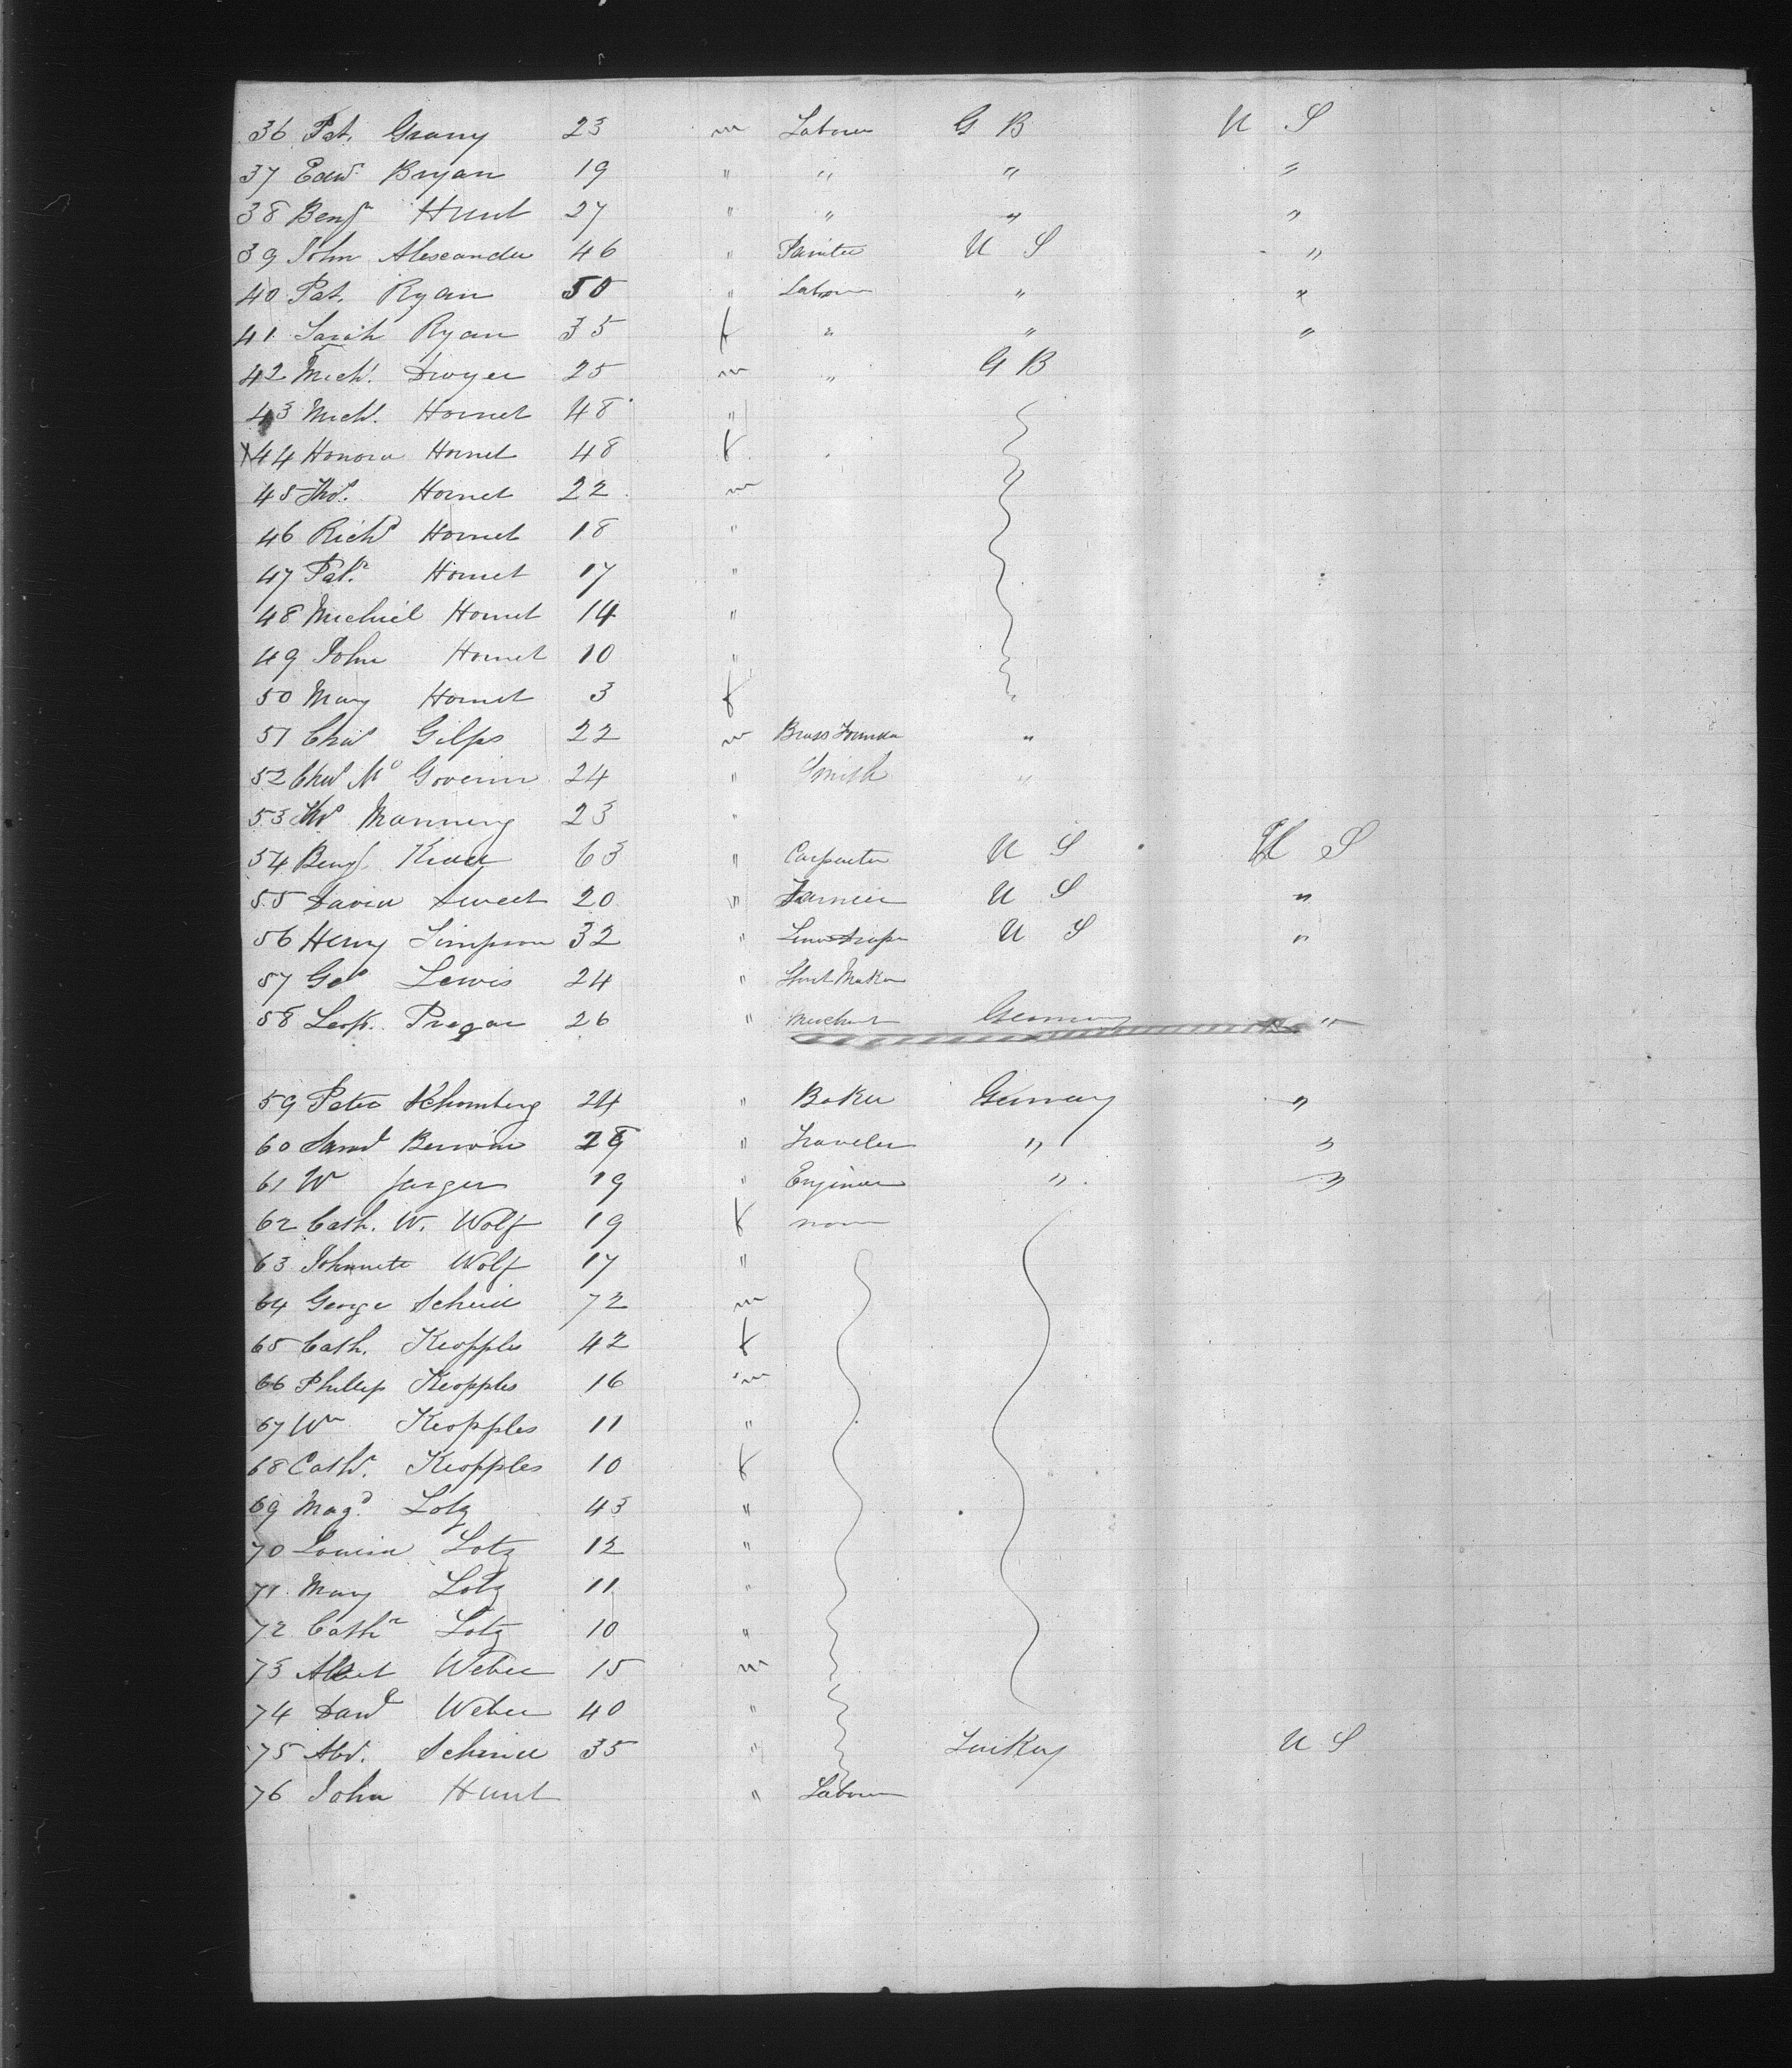 36 Pat. Grany 23 m Labourer G B U S
37 Edwd Bryan 19 " " " "
38 Benjn Hunt 27 " " " "
39 John Alexander 46 " Painter U S "
40 Pat. Ryan 50 " Labour " "
41 Sarah Ryan 35 f " " "
42 Michl. Dwyer 25 m " G B
43 Michl. Hornet 48 "
44 Honora Hornet 48 f
45 Thos. Hornet 22 m
46 Richd Hornet 18 "
47 Patk. Hornet 17 "
48 Michiel Hornet 14 "
49 John Hornet 10 "
50 Mary Hornet 3 f
51 Chas Gilps 22 m Brass Founder "
52 Chas Mc Goverin 24 " Smith "
53 Thos Manning 23 "
54 Benj. 63 " Carpenter U S U S
55 David Sweet 20 " Farmer U S "
56 Henry Simpson 32 " U S "
57 Geo Lewis 24 " Shirt Maker
58 Leop. Pragar 26 " Merchant Germany "
59 Peter Schomberg 24 " Baker Germany "
60 Saml Berwin 29 " Traveler " "
61 W Jarger 19 " Engineer " "
62 Cath. W. Wolf 19 f none
63 Johnnete Wolf 17 "
64 George 72 m
65 Cath. Keopples 42 f
66 Phillip Keopples 16 m
67 Wm Keopples 11 "
68 Cathr. Keopples 10 f
69 Magd. Lotz 43 "
70 Louisa Lotz 12 "
71 Mary Lotz 11 "
72 Cathr Lotz 10 "
73 Albert Weber 15 m
74 Davd Weber 40 "
75 Abr. 35 " Turkey U S
76 John Hunt " Labour